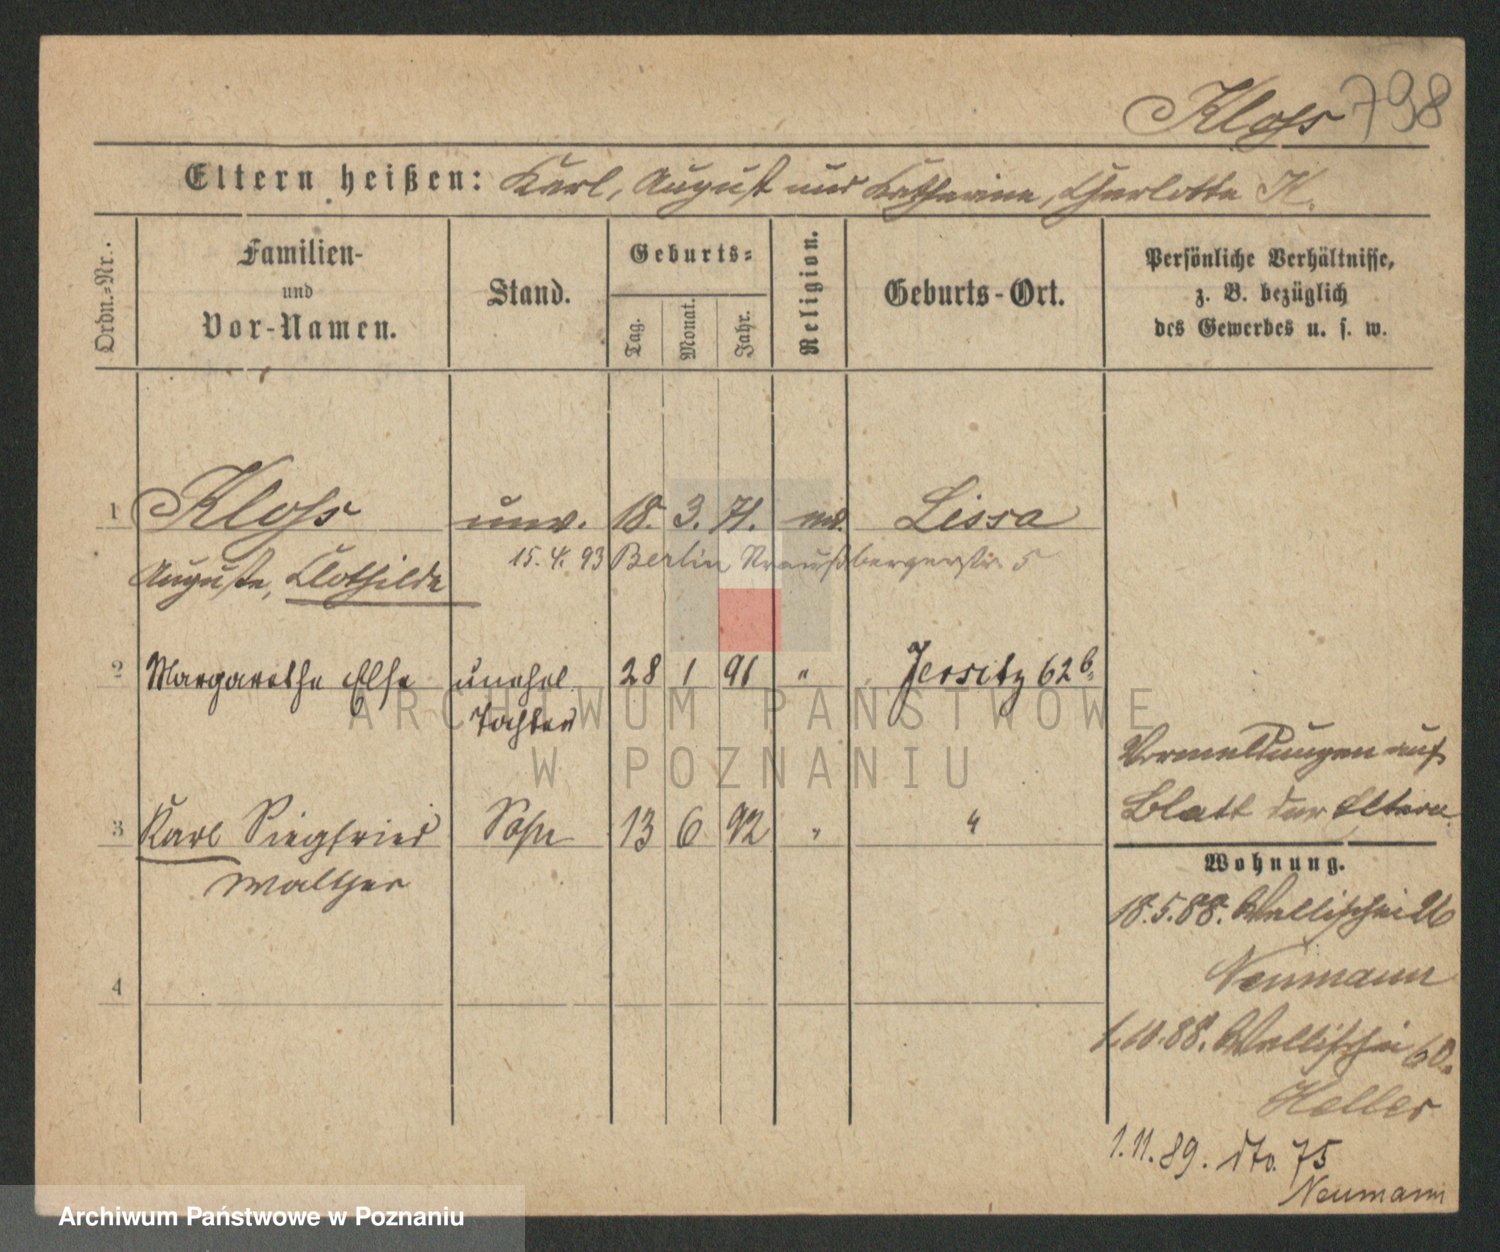 Kloss 798
Eltern heißen: Karl, August und Katharine, Charlotte K.
Ordn.-Nr.
Familien-
und
Vor-Namen.
Stand.
Geburts-
Tag.
Monat.
Jahr.
Religion.
Geburts-Ort.
Persönliche Verhältnisse,
z. B. bezüglich
des Gewerbes u. s. w.
1 Kloss unv. 18. 3. 71. ev. Lissa
15. 4. 93 Berlin Straußbergerstr. 5
Auguste, Clothilde
2 Margarethe Else unehel. 28 1 91 " Jersitz 62b.
Tochter
Vermeldungen auf
Blatt der Eltern.
3 Karl Siegfried Sohn 13 6 92 " "
Walther
Wohnung.
18.5.88. Wallischei 26
Neumann
4
1.10.88. Wallischei 60.
Heller
1.11.89. dto. 75
Neumann
ARCHIWUM PAŃSTWOWE
W POZNANIU
Archiwum Państwowe w Poznaniu